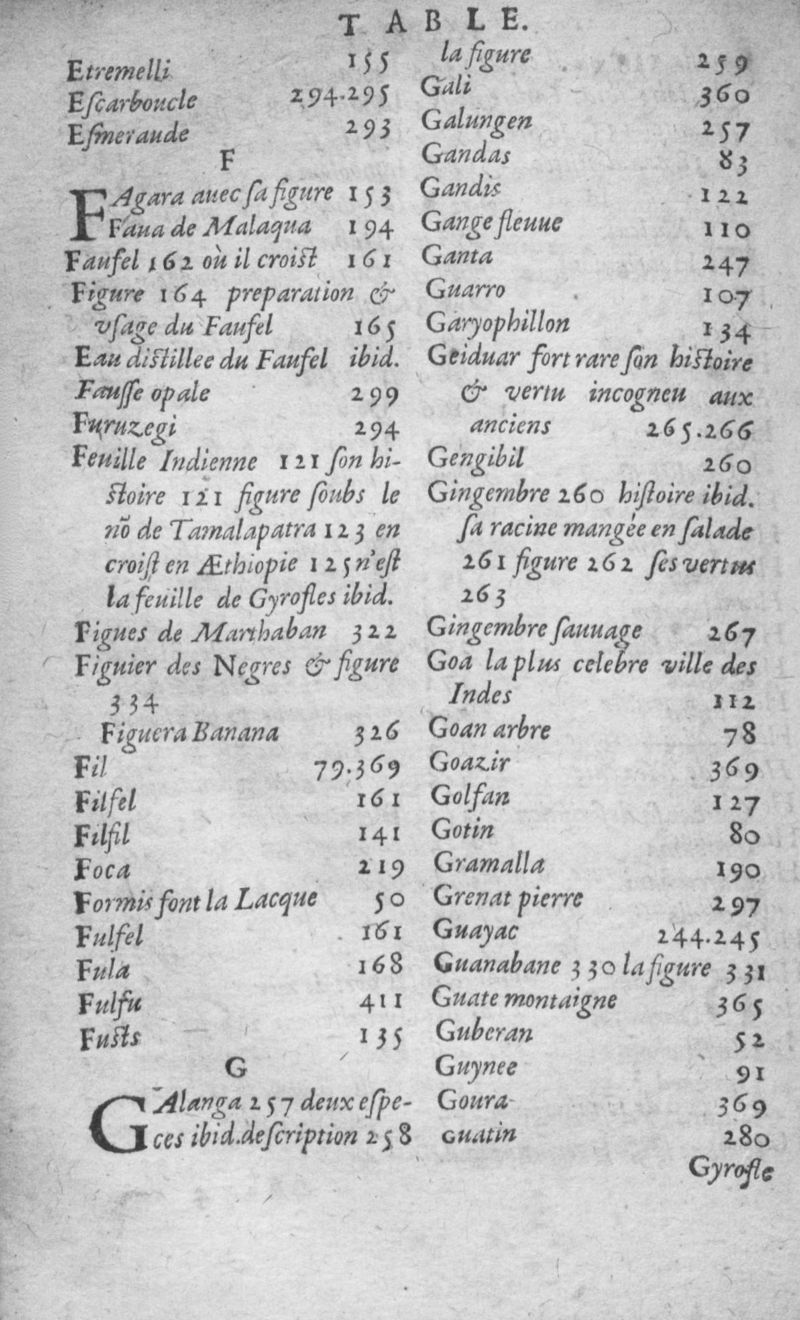 TABLE.
Etremelli 155
Eſcarboucle 294.295
Eſmeraude 293
F
FAgara auec ſa figure 153
Faua de Malaqua 194
Faufel 162 où il croiſt 161
Figure 164 preparation &
vſage du Faufel 165
Eau diſtillee du Faufel ibid.
Fauſſe opale 299
Furuzegi 294
Feuille Indienne 121 ſon hi-
ſtoire 121 figure ſoubs le
nõ de Tamalapatra 123 en
croiſt en Æthiopie 125 n'eſt
la feuille de Gyrofles ibid.
Figues de Marthaban 322
Figuier des Negres & figure
334
Figuera Banana 326
Fil 79.369
Filfel 161
Filfil 141
Foca 219
Formis font la Lacque 50
Fulfel 161
Fula 168
Fulfu 411
Fuſts 135
G
GAlanga 257 deux eſpe-
ces ibid. deſcription 258
la figure 259
Gali 360
Galungen 257
Gandas 83
Gandis 122
Gange fleuue 110
Ganta 247
Guarro 107
Garyophillon 134
Geiduar fort rare ſon hiſtoire
& vertu incogneu aux
anciens 265.266
Gengibil 260
Gingembre 260 hiſtoire ibid.
ſa racine mangée en ſalade
261 figure 262 ſes vertus
263
Gingembre ſauuage 267
Goa la plus celebre ville des
Indes 112
Goan arbre 78
Goazir 369
Golfan 127
Gotin 80
Gramalla 190
Grenat pierre 297
Guayac 244.245
Guanabane 330 la figure 331
Guate montaigne 365
Guberan 52
Guynee 91
Goura 369
Guatin 280
Gyrofle